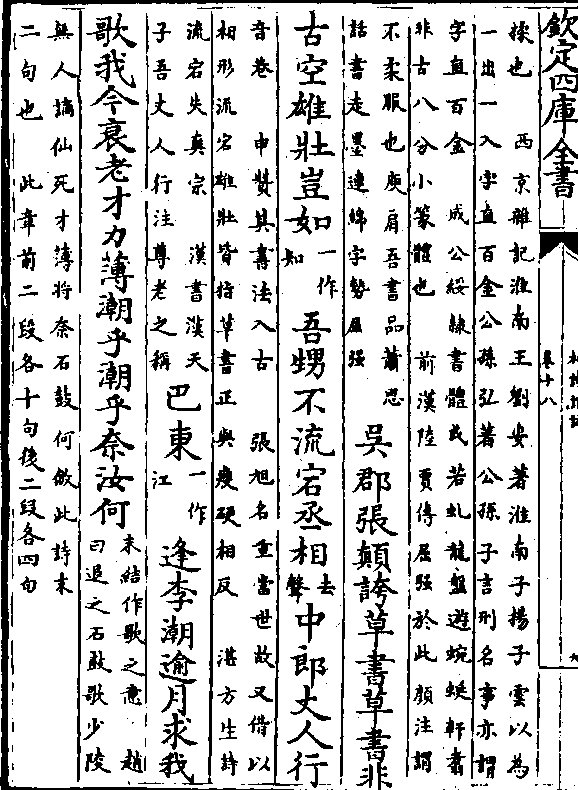 欽定四庫全書
卷十八
據也 西京雜記淮南王劉安著淮南子揚子雲以為
一出一入字直百金公孫弘著公孫子言刑名事亦謂
字直百金 成公綏隸書體或若虬龍盤遊蜿蜒軒翥
非古八分小篆體也 前漢陸賈傳屈强於此顔注謂
不柔服也庾肩吾書品蕭思
話書走墨連綿字勢屈强
吳郡張顛誇草書草書非
古空雄壯豈如一作知吾甥不流宕丞相去聲中郎丈人行
音巷 申贊其書法入古 張旭名重當世故又借以
相形流宕雄壯皆指草書正與瘦硬相反 湛方生詩
流宕失真宗 漢書漢天
子吾丈人行注尊老之稱
巴東一作江逢李潮逾月求我
歌我今衰老才力薄潮乎潮乎奈汝何
末結作歌之意 趙
曰退之石鼓歌少陵
無人謫仙死才薄將奈石鼓何倣此詩末
二句也 此章前二段各十句後二段各四句